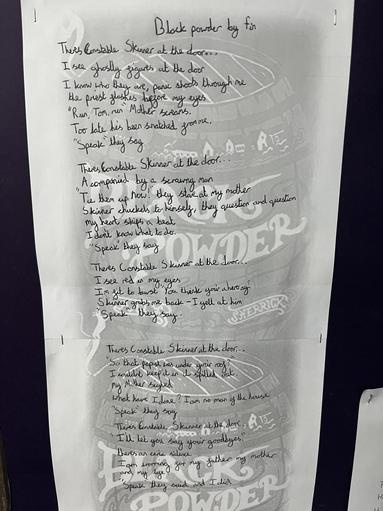 Black powder by fin
Theres Constable Skinner at the door...
I see ghostly figures at the door
I know who they are, panic shoots through me
the priest flashes before my eyes
"Run, Tom, run" Mother screams.
Too late hes been snatched from me.
"Speak" they say
Theres Constable Skinner at the door...
Acompanied by a scrawny man
"Tie them up Now!" they stare at my mother
Skinner chuckels to himself, they question and question
my heart skips a beat
I dont know what to do.
"Speak" they say
Theres Constable Skinner at the door...
I see red in my eyes
I'm fit to burst "You think your a hero"
Skinner grabs me back - I yell at him
"Speak" they say.
Theres Constable Skinner at the door...
"So that papist was under your roof"
I couldnt keep it in it spilled out
my Mother
What have I done? I am no man of the house
"Speak" they say
Theres Constable Skinner at the door
"I'll let you say your goodbyes"
theres an erie silence
I am for my father my mother
and my
"Speak" they said and I did.
BLACK POWDER
SHERRICK
BLACK POWDER